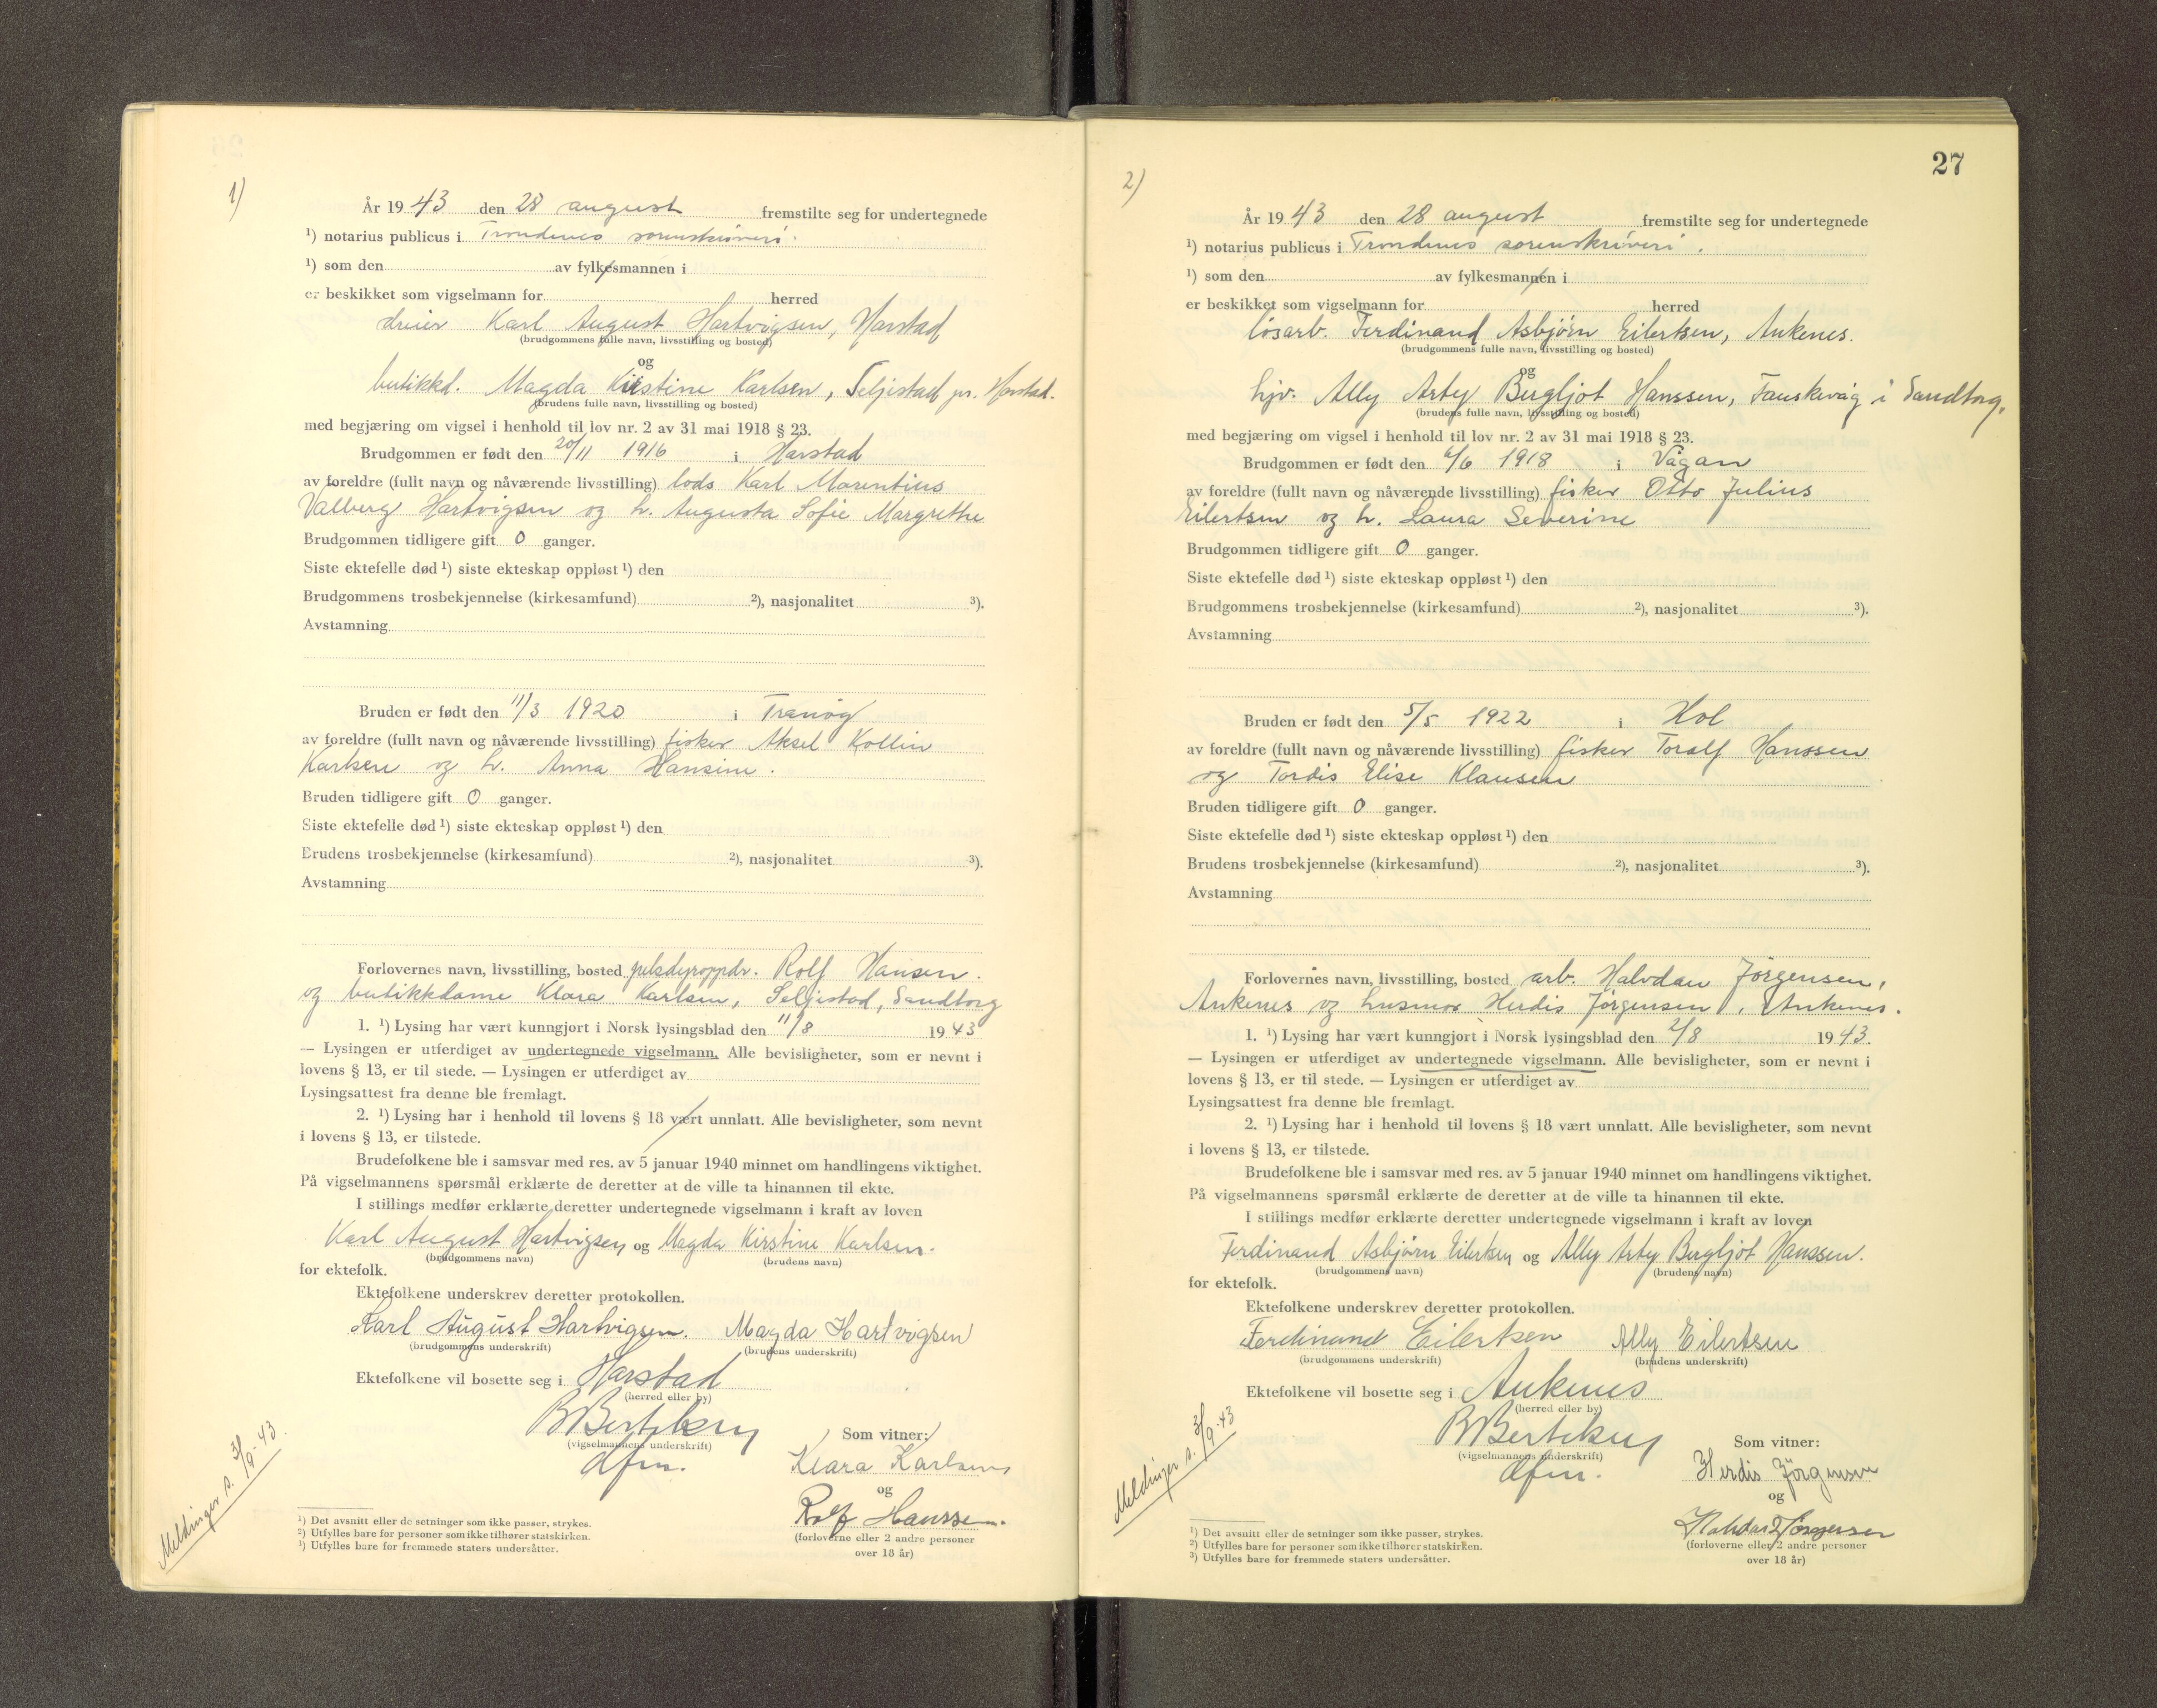 1)
År 1943 den 28 august fremstilte seg for undertegnede
¹) notarius publicus i Trondenes sorenskriveri.
¹) som den av fylkesmannen i
er beskikket som vigselmann for herred
dreier Karl August Hartvigsen, Harstad
(brudgommens fulle navn, livsstilling og bosted)
og
butikkd. Magda Kirstine Karlsen, Seljestad pr. Harstad.
(brudens fulle navn, livsstilling og bosted)
med begjæring om vigsel i henhold til lov nr. 2 av 31 mai 1918 § 23.
Brudgommen er født den 20/11 1916 i Harstad
av foreldre (fullt navn og nåværende livsstilling) lods Karl Marentius
Valberg Hartvigsen og h. Augusta Sofie Margrethe
Brudgommen tidligere gift 0 ganger.
Siste ektefelle død ¹) siste ekteskap oppløst ¹) den
Brudgommens trosbekjennelse (kirkesamfund) ²), nasjonalitet ³).
Avstamning
Bruden er født den 11/3 1920 i Tranøy
av foreldre (fullt navn og nåværende livsstilling) fisker Aksel Kollin
Karlsen og h. Anna Hansine.
Bruden tidligere gift 0 ganger.
Siste ektefelle død ¹) siste ekteskap oppløst ¹) den
Brudens trosbekjennelse (kirkesamfund) ²), nasjonalitet ³).
Avstamning
Forlovernes navn, livsstilling, bosted pelsdyroppdr. Rolf Hansen.
og butikkdame Klara Karlsen, Seljestad, Sandtorg
1. ¹) Lysing har vært kunngjort i Norsk lysingsblad den 11/8 1943
— Lysingen er utferdiget av undertegnede vigselmann. Alle bevisligheter, som er nevnt i
lovens § 13, er til stede. — Lysingen er utferdiget av
Lysingsattest fra denne ble fremlagt.
2. ¹) Lysing har i henhold til lovens § 18 vært unnlatt. Alle bevisligheter, som nevnt
i lovens § 13, er tilstede.
Brudefolkene ble i samsvar med res. av 5 januar 1940 minnet om handlingens viktighet.
På vigselmannens spørsmål erklærte de deretter at de ville ta hinannen til ekte.
I stillings medfør erklærte deretter undertegnede vigselmann i kraft av loven
Karl August Hartvigsen og Magda Kirstine Karlsen.
(brudgommens navn) (brudens navn)
for ektefolk.
Ektefolkene underskrev deretter protokollen.
Karl August Hartvigsen. Magda Hartvigsen
(brudgommens underskrift) (brudens underskrift)
Ektefolkene vil bosette seg i Harstad
(herred eller by)
(vigselmannens underskrift)
Som vitner:
Klara Karlsen
og
Rolf Hanssen.
(forloverne eller 2 andre personer
over 18 år)
¹) Det avsnitt eller de setninger som ikke passer, strykes.
²) Utfylles bare for personer som ikke tilhører statskirken.
³) Utfylles bare for fremmede staters undersåtter.
Meldinger s. 3/9-43.
27
2)
År 1943 den 28 august fremstilte seg for undertegnede
¹) notarius publicus i Trondenes sorenskriveri.
¹) som den av fylkesmannen i
er beskikket som vigselmann for herred
løsarb. Ferdinand Asbjørn Eilertsen, Ankenes.
(brudgommens fulle navn, livsstilling og bosted)
og
hjv. Ally Arty Bergljot Hanssen, Fauskevåg i Sandtorg.
(brudens fulle navn, livsstilling og bosted)
med begjæring om vigsel i henhold til lov nr. 2 av 31 mai 1918 § 23.
Brudgommen er født den 6/6 1918 i Vågan
av foreldre (fullt navn og nåværende livsstilling) fisker Otto Julius
Eilertsen og h. Laura Severine
Brudgommen tidligere gift 0 ganger.
Siste ektefelle død ¹) siste ekteskap oppløst ¹) den
Brudgommens trosbekjennelse (kirkesamfund) ²), nasjonalitet ³).
Avstamning
Bruden er født den 5/5 1922 i Hol
av foreldre (fullt navn og nåværende livsstilling) fisker Toralf Hanssen
og Tordis Elise Klausen
Bruden tidligere gift 0 ganger.
Siste ektefelle død ¹) siste ekteskap oppløst ¹) den
Brudens trosbekjennelse (kirkesamfund) ²), nasjonalitet ³).
Avstamning
Forlovernes navn, livsstilling, bosted arb. Halvdan Jörgensen,
Ankenes og husmor Herdis Jörgensen, Ankenes.
1. ¹) Lysing har vært kunngjort i Norsk lysingsblad den 2/8 1943.
— Lysingen er utferdiget av undertegnede vigselmann. Alle bevisligheter, som er nevnt i
lovens § 13, er til stede. — Lysingen er utferdiget av
Lysingsattest fra denne ble fremlagt.
2. ¹) Lysing har i henhold til lovens § 18 vært unnlatt. Alle bevisligheter, som nevnt
i lovens § 13, er tilstede.
Brudefolkene ble i samsvar med res. av 5 januar 1940 minnet om handlingens viktighet.
På vigselmannens spørsmål erklærte de deretter at de ville ta hinannen til ekte.
I stillings medfør erklærte deretter undertegnede vigselmann i kraft av loven
Ferdinand Asbjørn Eilertsen og Ally Arty Bergljot Hanssen.
(brudgommens navn) (brudens navn)
for ektefolk.
Ektefolkene underskrev deretter protokollen.
Ferdinand Eilertsen Ally Eilertsen
(brudgommens underskrift) (brudens underskrift)
Ektefolkene vil bosette seg i Ankenes
(herred eller by)
(vigselmannens underskrift)
Som vitner:
Herdis Jörgensen
og
Halvdan Jörgensen
(forloverne eller 2 andre personer
over 18 år)
¹) Det avsnitt eller de setninger som ikke passer, strykes.
²) Utfylles bare for personer som ikke tilhører statskirken.
³) Utfylles bare for fremmede staters undersåtter.
Meldinger s. 3/9-43